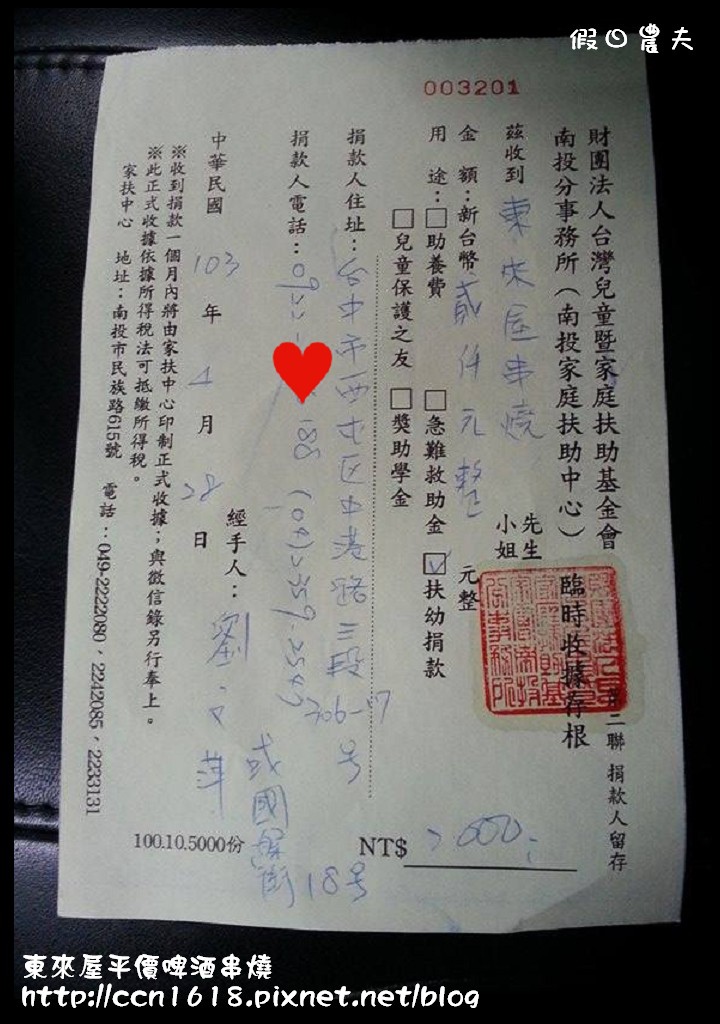 假日農夫
003201
財團法人台灣兒童暨家庭扶助基金會
南投分事務所（南投家庭扶助中心）臨時收據存根
第二聯 捐款人留存
茲收到 東來屋串燒 先生 小姐
金額：新台幣 貳仟元整 元整
用途：□助養費 □急難救助金 ☑扶幼捐款
□兒童保護之友 □獎助學金
NT$ 2000
捐款人住址：台中市西屯區中港路三段306-17号
捐款人電話：0922- 188 (04)2359-2543
或國 街18号
經手人：劉
中華民國 103 年 4 月 28 日
※收到捐款一個月內將由家扶中心印制正式收據；與徵信錄另行奉上。
※此正式收據依據所得稅法可抵繳所得稅。
家扶中心 地址：南投市民族路615號 電話：049-2222080，2242085，2233131
100.10.5000份
東來屋平價啤酒串燒
http://ccn1618.pixnet.net/blog